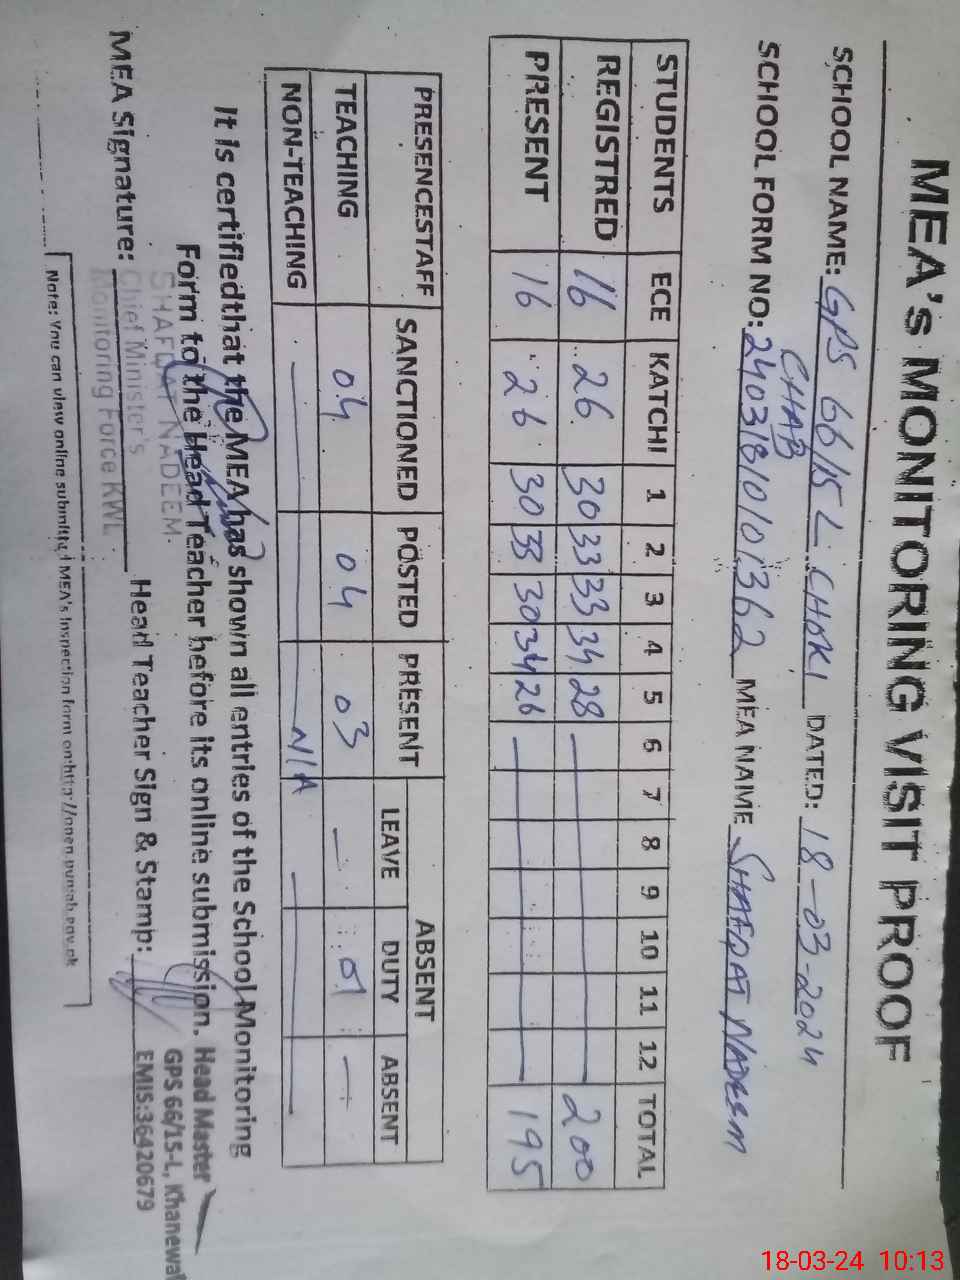 MEA's MONITORING VISIT PROOF
SCHOOL NAME: GPS 66/15 L CHOKI DATED: 18-03-2024
CHAB
SCHOOL FORM NO: 2403181010101362 MEA NAME SHAFQAT NADEEM
STUDENTS ECE KATCHI 1 2 3 4 5 6 7 8 9 10 11 12 TOTAL
REGISTRED 16 26 30 33 33 34 28 — 200
PRESENT 16 26 30 33 30 34 26 — 195
PRESENCESTAFF SANCTIONED POSTED PRESENT ABSENT
LEAVE DUTY ABSENT
TEACHING 04 04 03 — 01 —
NON-TEACHING — N/A —
It is certifiedthat the MEA has shown all entries of the School Monitoring
Form to the Head Teacher before its online submission.
SHAFQAT NADEEM
Chief Minister's
Monitoring Force KWL
MEA Signature: Head Teacher Sign & Stamp:
Head Master
GPS 66/15-L, Khanewal
EMIS:36420679
Note: You can view online submitted MEA's Inspection form on:http://open.punjab.gov.pk
18-03-24 10:13